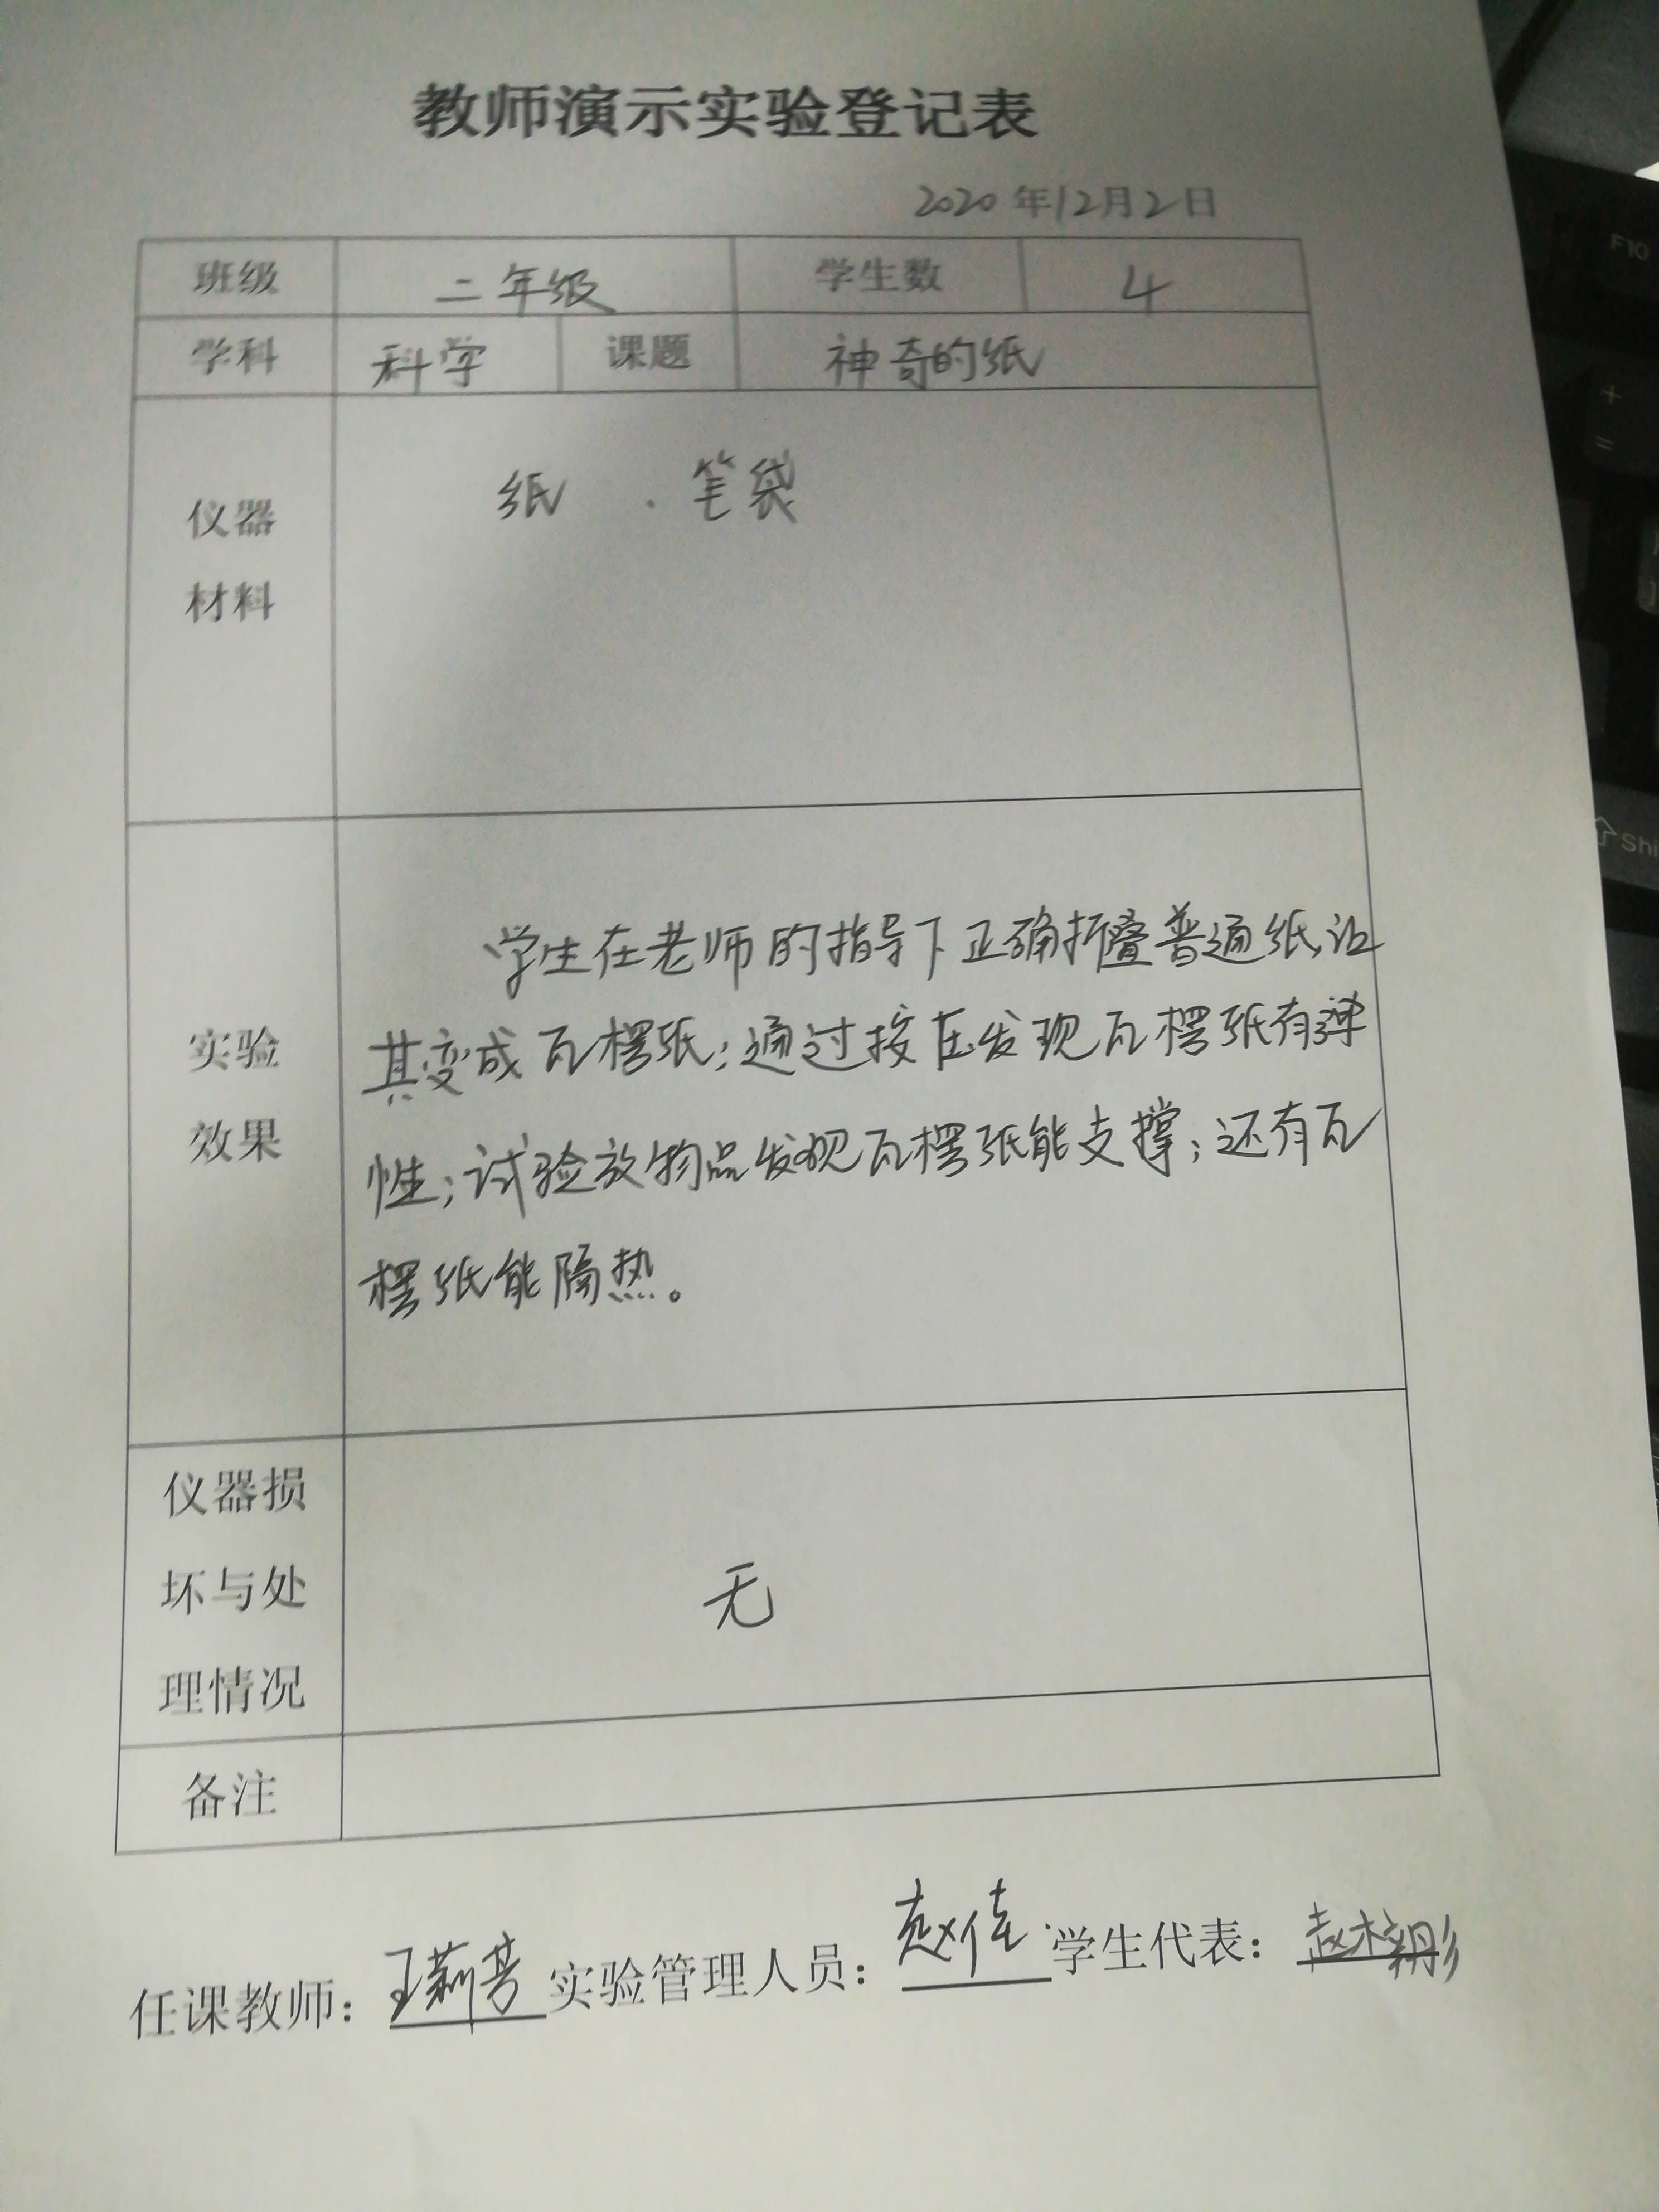 教师演示实验登记表
2020年12月2日
班级 二年级 学生数 4
学科 科学 课题 神奇的纸
仪器
材料
纸 、笔袋
实验
效果
学生在老师的指导下正确折叠普通纸,让
其变成瓦楞纸;通过按压发现瓦楞纸有弹
性;试验放物品发现瓦楞纸能支撑;还有瓦
楞纸能隔热。
仪器损
坏与处
理情况
无
备注
任课教师: 王莉芳 实验管理人员: 赵佳 学生代表: 赵
F10
+
=
Shi